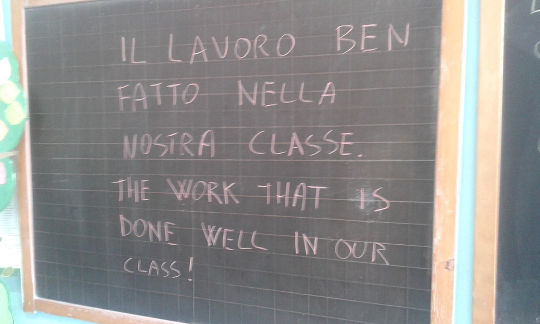 IL LAVORO BEN
FATTO NELLA
NOSTRA CLASSE.
THE WORK THAT IS
DONE WELL IN OUR
CLASS!